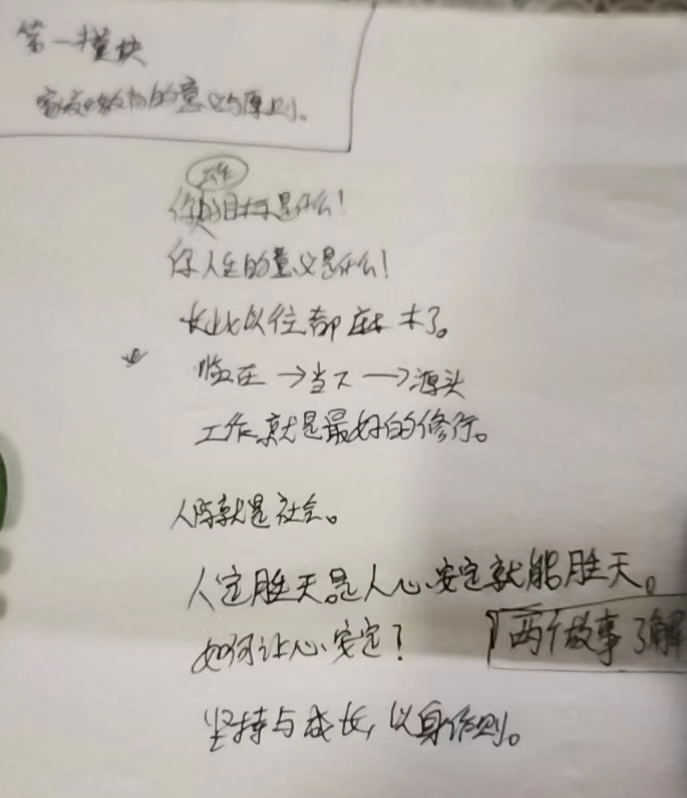 第一模块
家庭教育的意义与原则。
你的目标是什么！
你人生的意义是什么！
长此以往都麻木了。
临在→当下→源头
工作就是最好的修行。
人际就是社会。
人定胜天。是人心安定就能胜天。
如何让心安定？
两个故事了解
坚持与成长，以身作则。